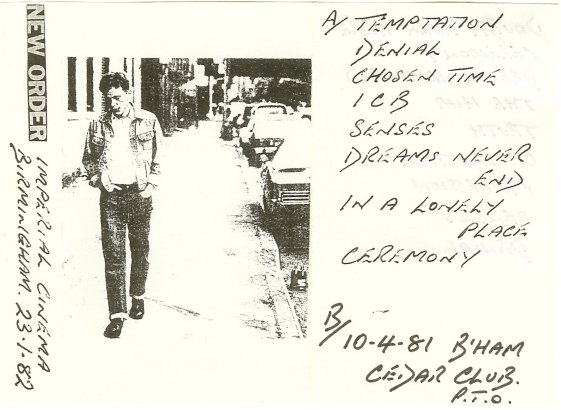 NEW ORDER
IMPERIAL CINEMA
BIRMINGHAM 23·1·82
A/ TEMPTATION
DENIAL
CHOSEN TIME
ICB
SENSES
DREAMS NEVER
END
IN A LONELY
PLACE
CEREMONY
B/
10-4-81 B'HAM
CEDAR CLUB.
P.T.O.